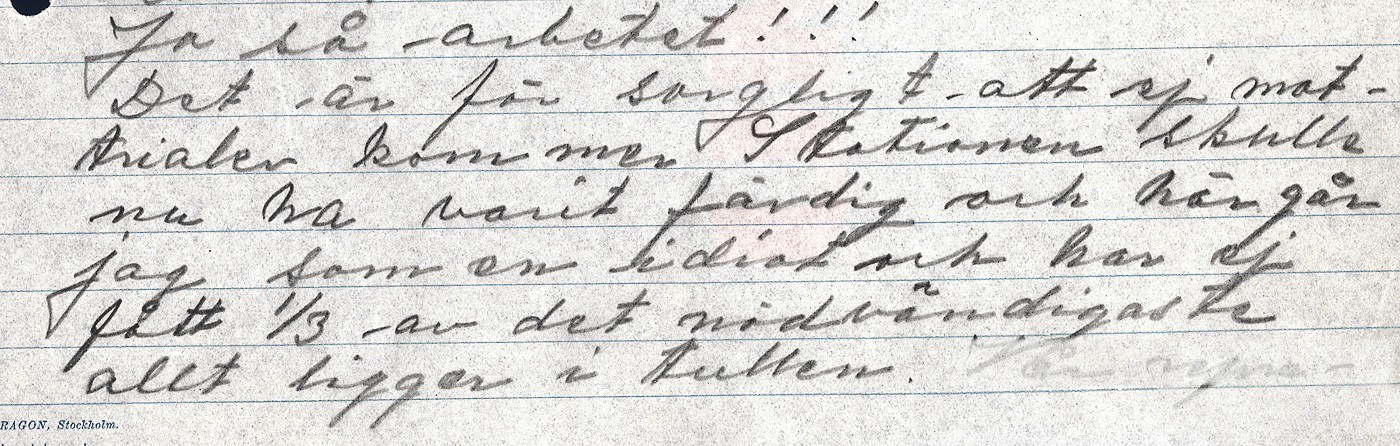 Ja så arbetet!!!
Det är för sorgligt att ej mat-
trialer kommer Stationen skulle
nu ha varit färdig och här går
jag som en idiot och har ej
fått 1/3 av det nödvändigaste
allt ligger i tullen.
RAGON, Stockholm.